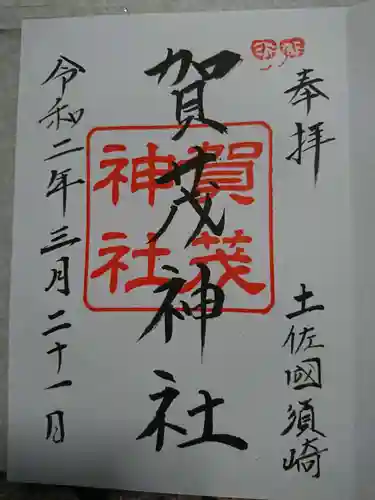 奉拝
土佐國須崎
賀茂神社
賀茂
神社
令和二年三月二十一日